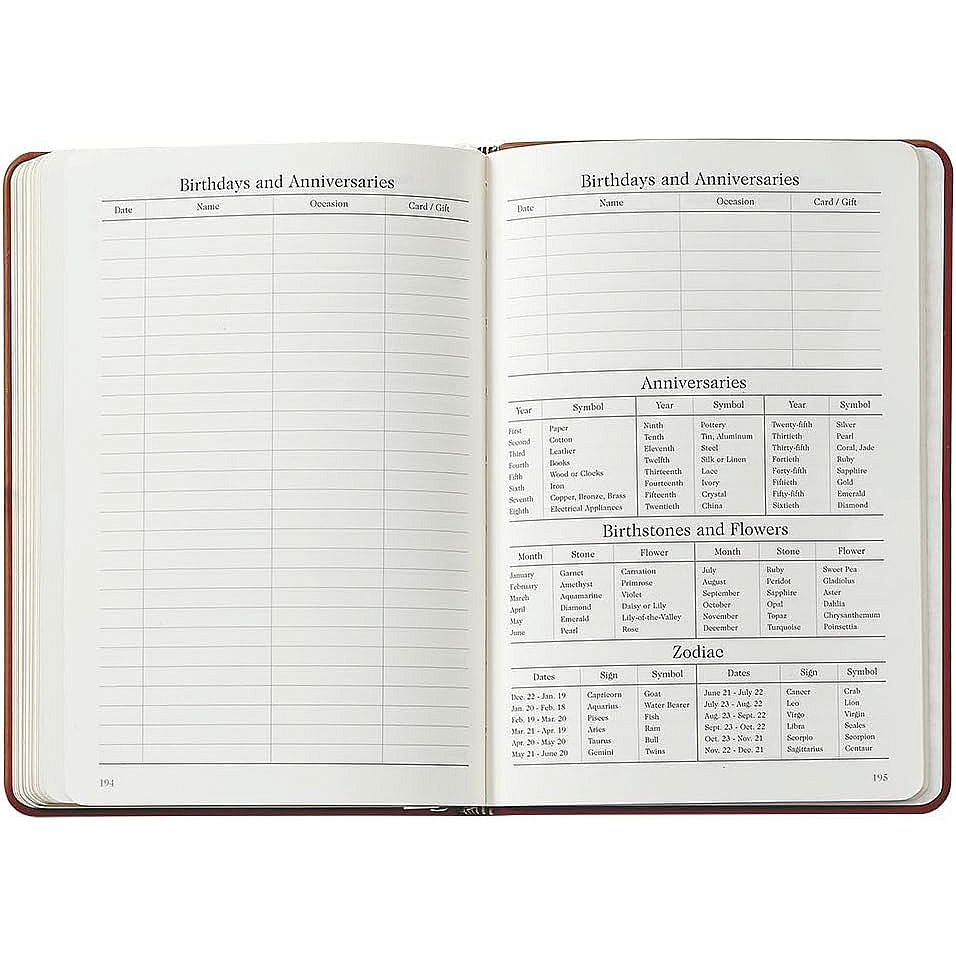 Birthdays and Anniversaries
Date Name Occasion Card / Gift
194
Birthdays and Anniversaries
Date Name Occasion Card / Gift
Anniversaries
Year Symbol Year Symbol Year Symbol
First Paper Ninth Pottery Twenty-fifth Silver
Second Cotton Tenth Tin, Aluminum Thirtieth Pearl
Third Leather Eleventh Steel Thirty-fifth Coral, Jade
Fourth Books Twelfth Silk or Linen Fortieth Ruby
Fifth Wood or Clocks Thirteenth Lace Forty-fifth Sapphire
Sixth Iron Fourteenth Ivory Fiftieth Gold
Seventh Copper, Bronze, Brass Fifteenth Crystal Fifty-fifth Emerald
Eighth Electrical Appliances Twentieth China Sixtieth Diamond
Birthstones and Flowers
Month Stone Flower Month Stone Flower
January Garnet Carnation July Ruby Sweet Pea
February Amethyst Primrose August Peridot Gladiolus
March Aquamarine Violet September Sapphire Aster
April Diamond Daisy or Lily October Opal Dahlia
May Emerald Lily-of-the-Valley November Topaz Chrysanthemum
June Pearl Rose December Turquoise Poinsettia
Zodiac
Dates Sign Symbol Dates Sign Symbol
Dec. 22 - Jan. 19 Capricorn Goat June 21 - July 22 Cancer Crab
Jan. 20 - Feb. 18 Aquarius Water Bearer July 23 - Aug. 22 Leo Lion
Feb. 19 - Mar. 20 Pisces Fish Aug. 23 - Sept. 22 Virgo Virgin
Mar. 21 - Apr. 19 Aries Ram Sept. 23 - Oct. 22 Libra Scales
Apr. 20 - May 20 Taurus Bull Oct. 23 - Nov. 21 Scorpio Scorpion
May 21 - June 20 Gemini Twins Nov. 22 - Dec. 21 Sagittarius Centaur
195